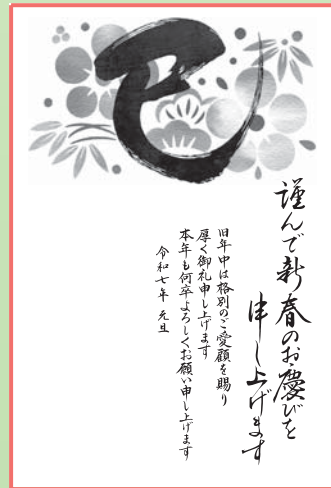 巳
謹んで新春のお慶びを
申し上げます
旧年中は格別のご愛顧を賜り
厚く御礼申し上げます
本年も何卒よろしくお願い申し上げます
令和七年 元旦